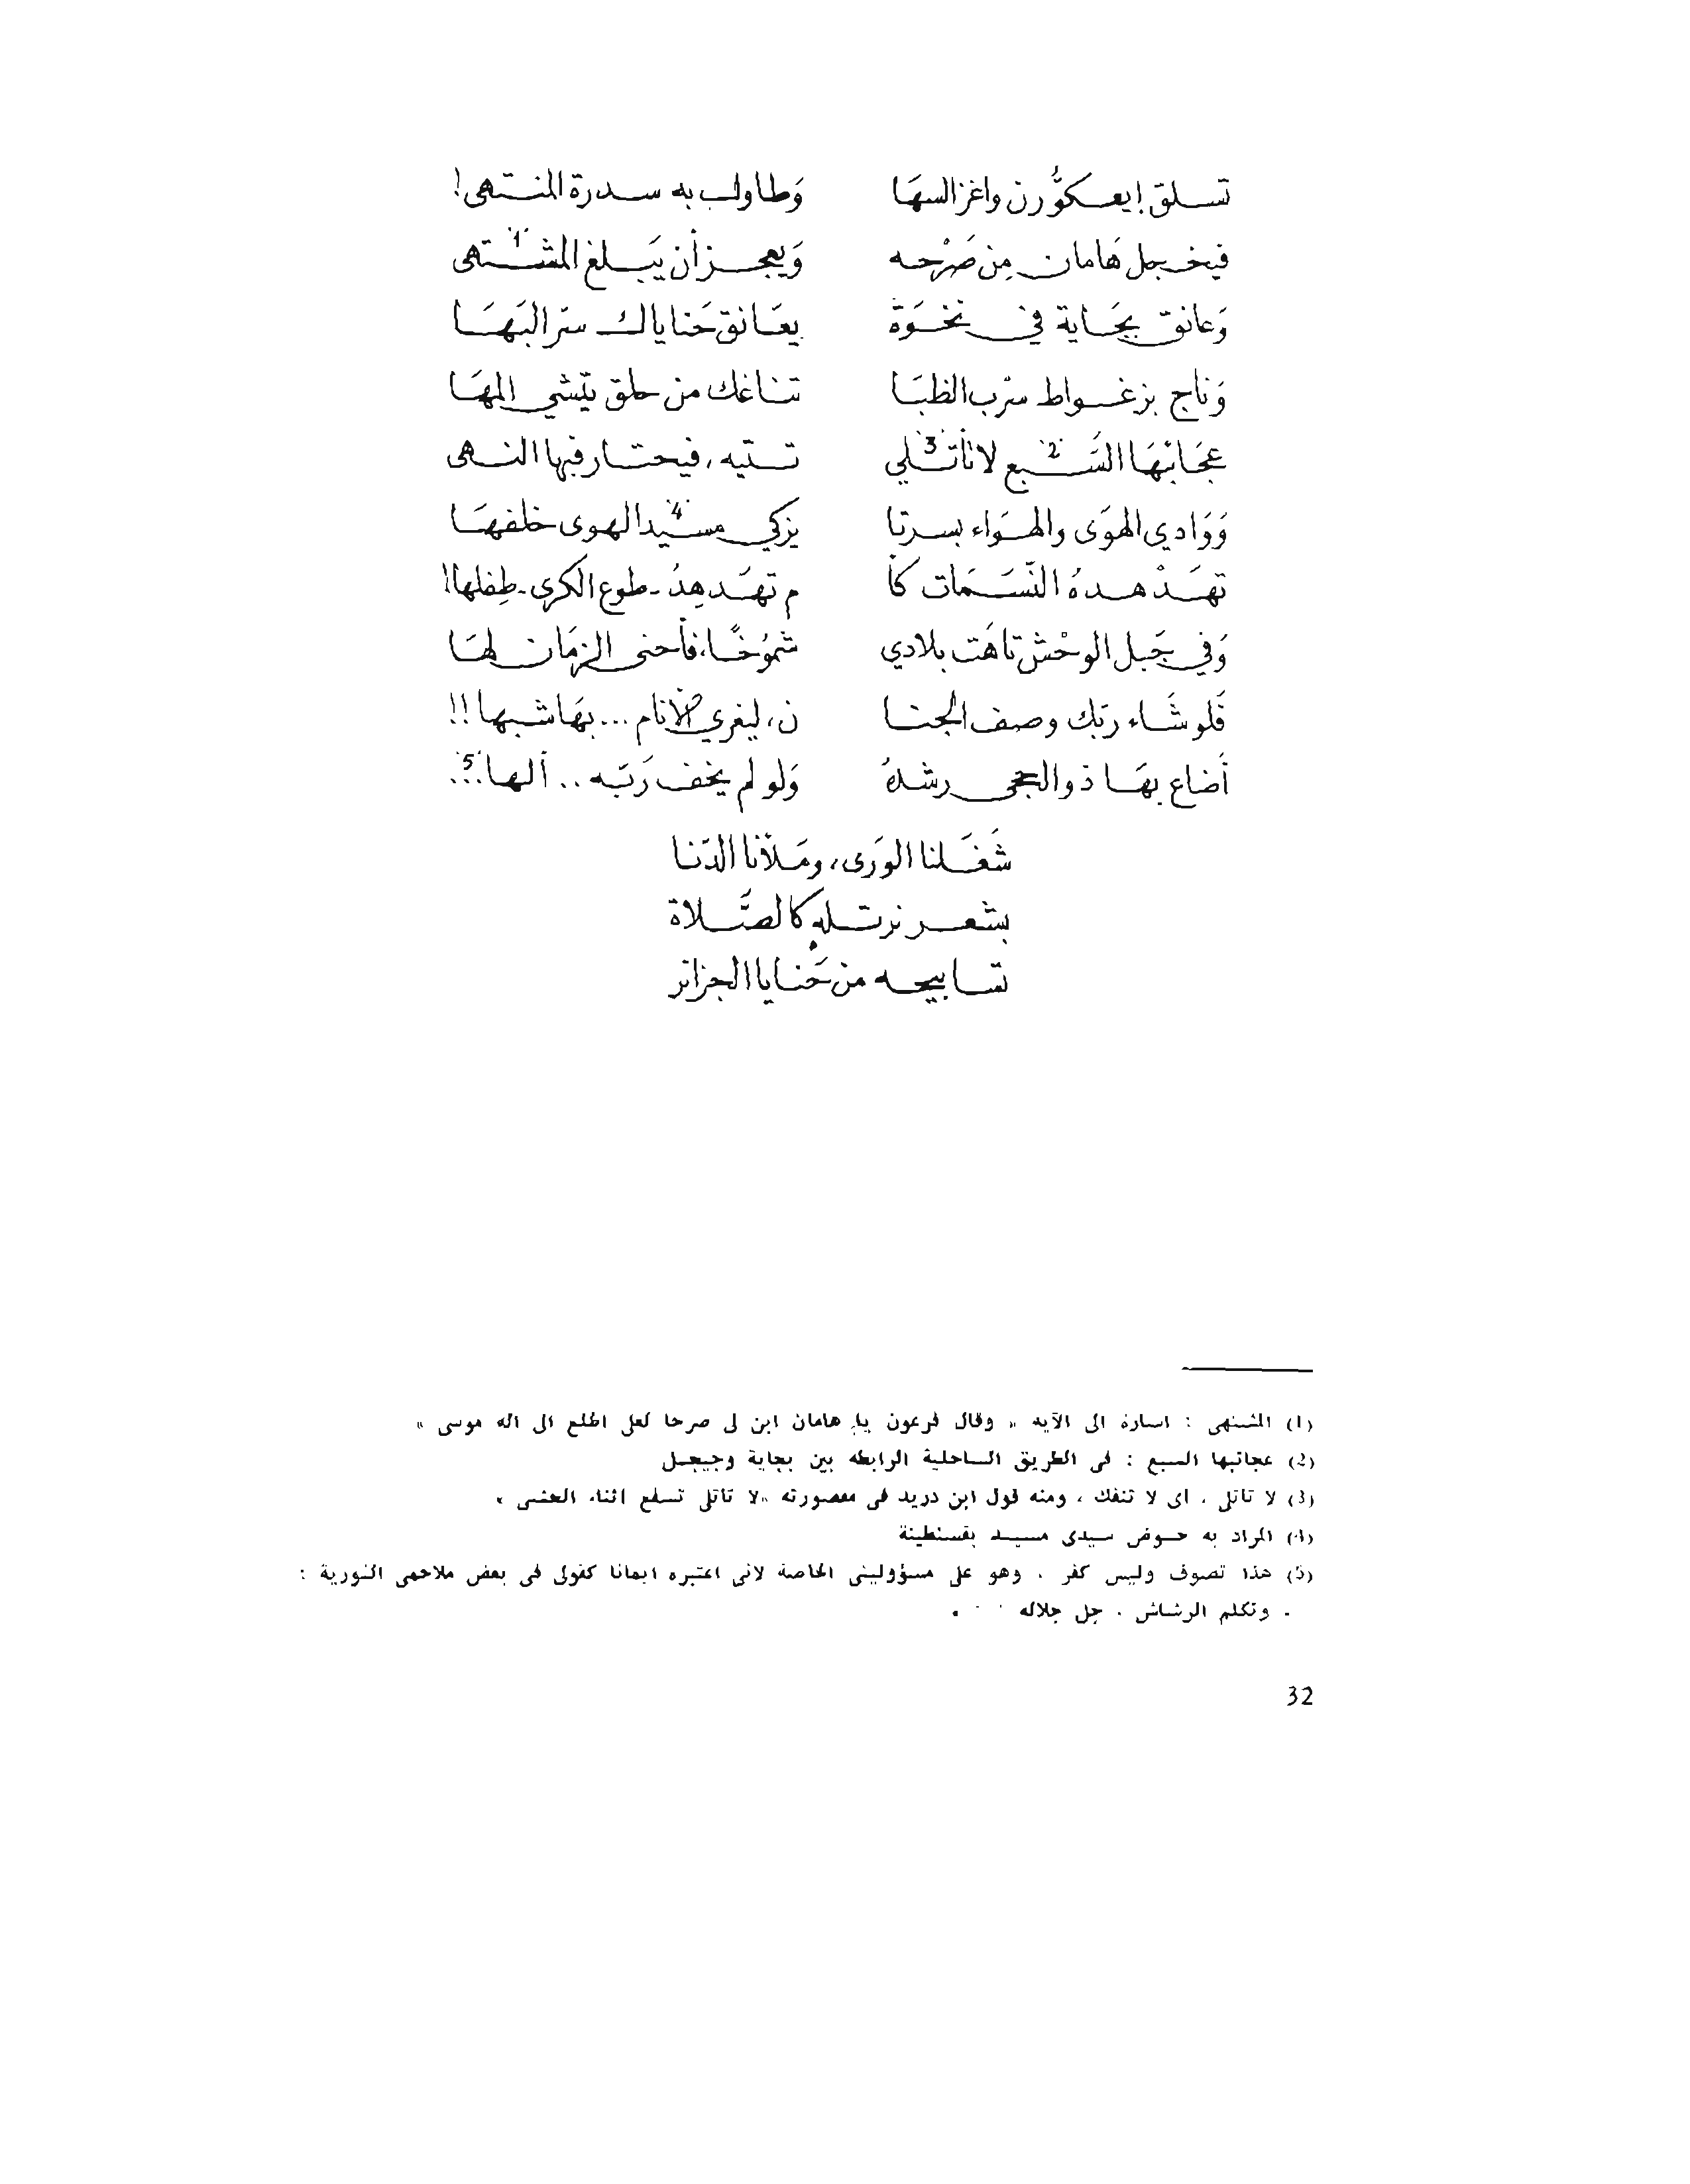 تسلق إيعكوُّرن واغز السهَا وَطاول به سدرة المنتهى!
فيخجل هَامان مِن صَرْحه وَيعجز أن يَبلغ المشتهى (1)
وَعانق بجَاية في نخوَة يعَانق حَناياك سرّ البَهَا
وَناج بزغواط سرْب الظبَا تناغك من حلق يتّشي المهَا
عجَائبهَا السَّبع (2) لا تأتلي (3) تتيه، فيحتار فيها النهى
وَوَادي الهوَى والهوَاء بسرتا يزكي مسيد (4) الهوى خلفهَا
تهَدْهدهُ النّسَمَات كأ م تهَدهِدُ - طوع الكرى - طِفلها!
وَفي جَبل الوحْش تاهَت بلادي شمُوُخًا، فأحنى الزمَان لهَا
فَلو شَاء ربّك وصف الجنا ن، ليغري الأنام... بهَا شبهها!!
أضاع بهَا ذو الحجى رشدهُ وَلو لم يخف رَبّه.. ألهها (5)...
شَغَلنا الوَرَى، ومَلأنا الدّنا
بشعر نرتله كالصَّلاة
تسابيحه من حَنايا الجزائر
(1) المشتهى : اشارة الى الآية « وقال فرعون يا هامان ابن لى صرحا لعلى اطلع الى اله موسى »
(2) عجائبها السبع : فى الطريق الساحلية الرابطة بين بجاية وجيجل
(3) لا تاتلى ، اى لا تنفك ، ومنه قول ابن دريد فى مقصورته «لا تاتلى تسفع اثناء الحشى »
(4) المراد به حوض سيدى مسيد بقسنطينة
(5) هذا تصوف وليس كفر ، وهو على مسؤوليتى الخاصة لانى اعتبره ايمانا كقولى فى بعض ملاحمى الثورية :
- وتكلم الرشاش ، جل جلاله . . .
32